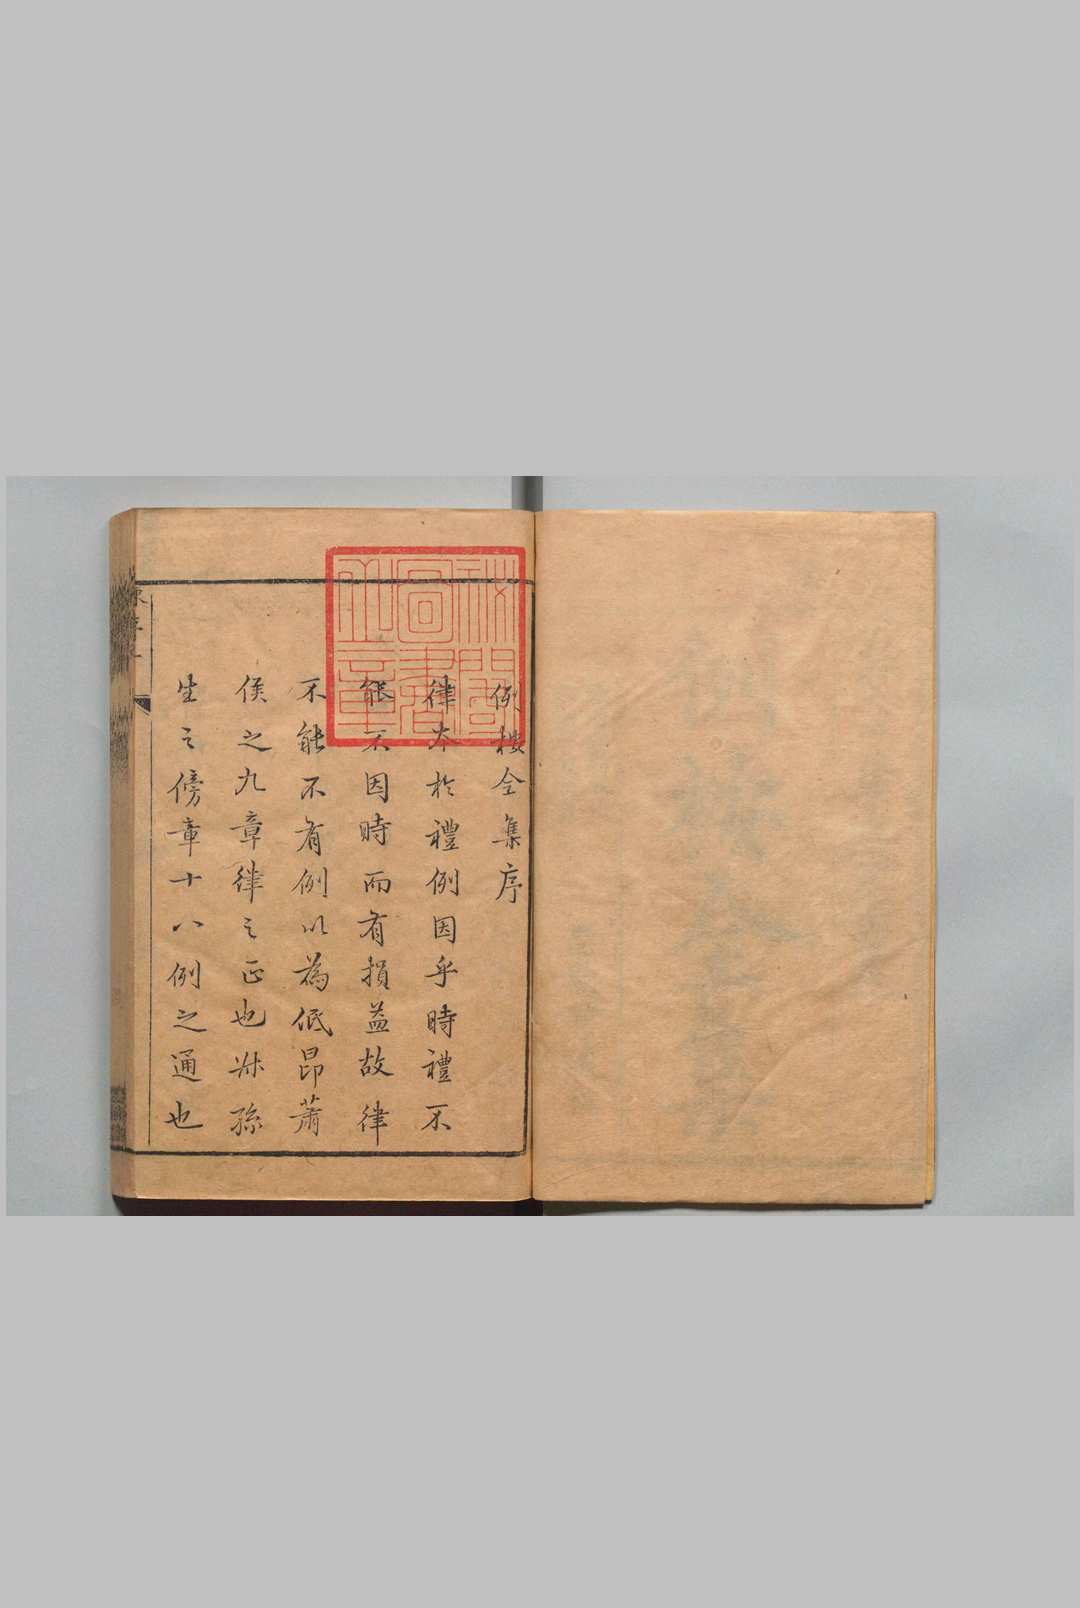 例
全集序
律本於禮例因乎時禮不
能不因時而有損益故律
不能不有例以為低昂蕭
侯之九章律之正也叔孫
生之傍章十八例之通也
秘閣
圖書
之章